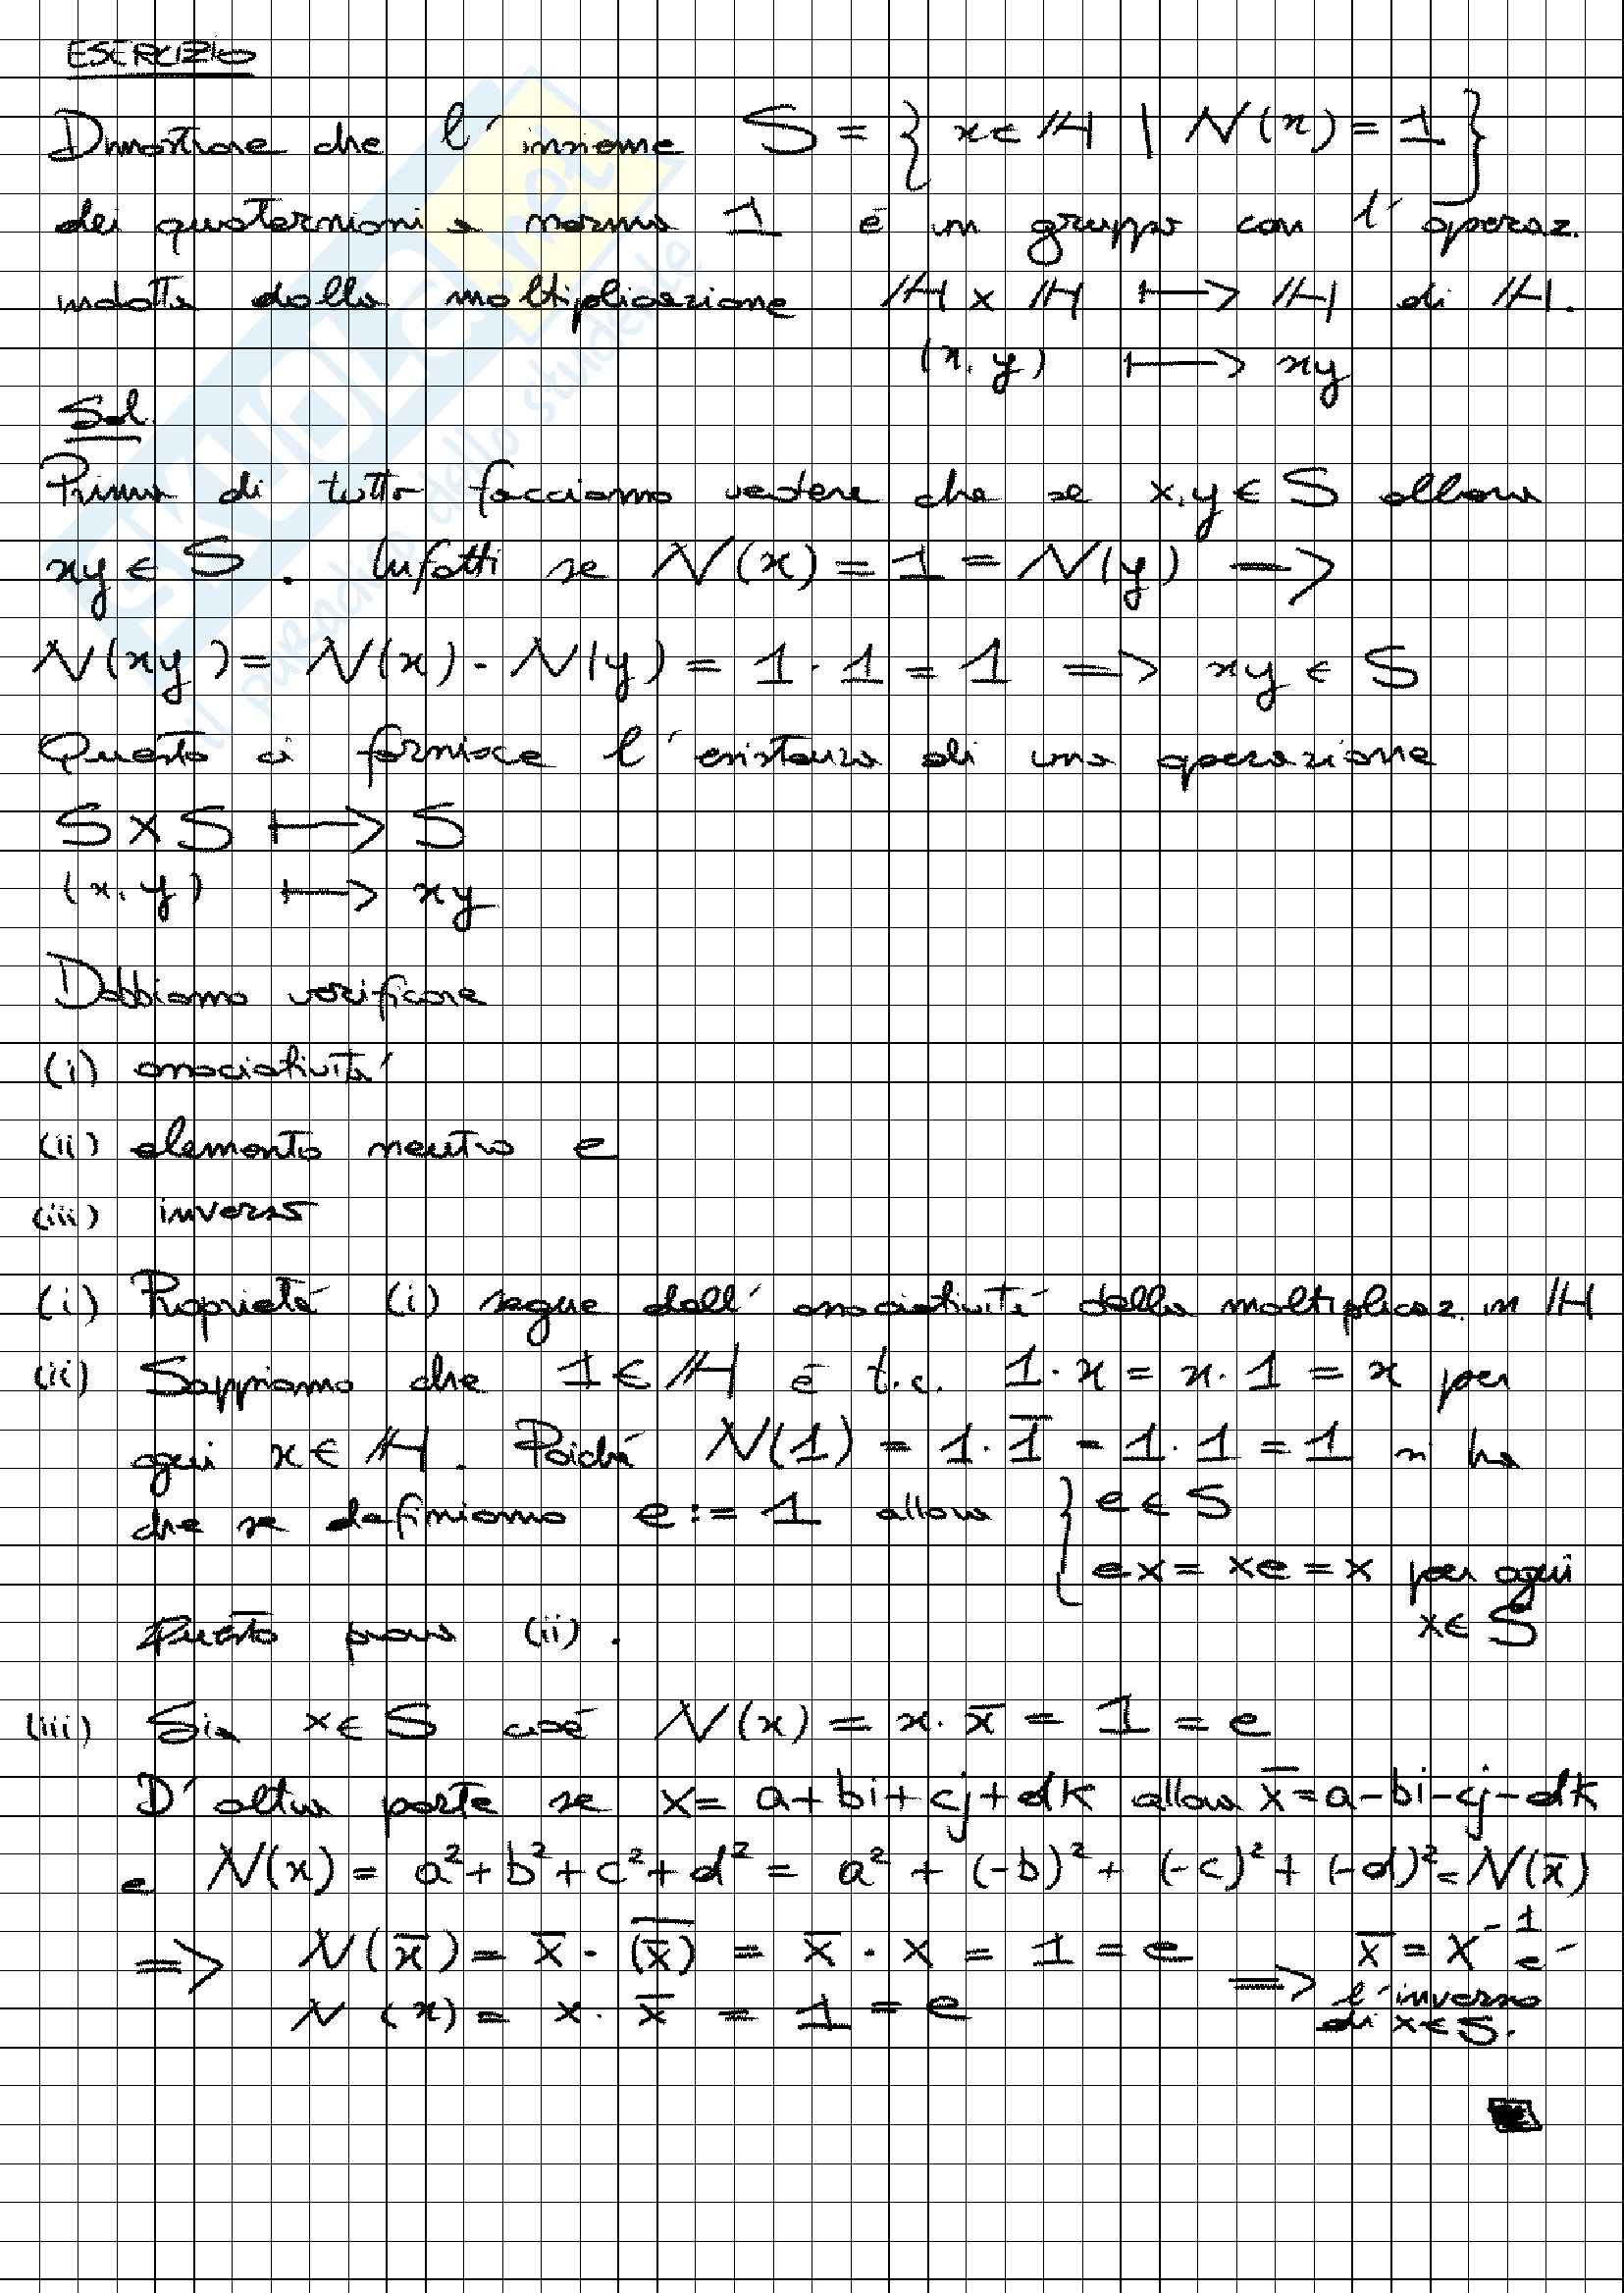 ESERCIZIO
Dimostrare che l' insieme S = { x ∈ ℍ | N(x) = 1 }
dei quaternioni a norma 1 è un gruppo con l' operaz.
indotta dalla moltiplicazione ℍ × ℍ ⟼ ℍ di ℍ.
(x, y) ⟼ xy
Sol.
Prima di tutto facciamo vedere che se x, y ∈ S allora
xy ∈ S. Infatti se N(x) = 1 = N(y) ⇒
N(xy) = N(x) · N(y) = 1 · 1 = 1 ⇒ xy ∈ S
Questo ci fornisce l' esistenza di una operazione
S × S ⟼ S
(x, y) ⟼ xy
Dobbiamo verificare
(i) associatività
(ii) elemento neutro e
(iii) inverso
(i) Proprietà (i) segue dall' associatività della moltiplicaz. in ℍ
(ii) Sappiamo che 1 ∈ ℍ è t.c. 1 · x = x · 1 = x per
ogni x ∈ ℍ. Poiché N(1) = 1 · 1̅ = 1 · 1 = 1 si ha
che se definiamo e := 1 allora { e ∈ S
ex = xe = x per ogni
x ∈ S
Questo prova (ii).
(iii) Sia x ∈ S cioè N(x) = x · x̅ = 1 = e
D' altra parte se x = a + bi + cj + dk allora x̅ = a - bi - cj - dk
e N(x) = a² + b² + c² + d² = a² + (-b)² + (-c)² + (-d)² = N(x̅)
⇒ N(x̅) = x̅ · (x̅)̅ = x̅ · x = 1 = e ⇒ x̅ = x⁻¹ è
N(x) = x · x̅ = 1 = e l' inverso
di x ∈ S.
SKUOLA.net
il paradiso dello studente